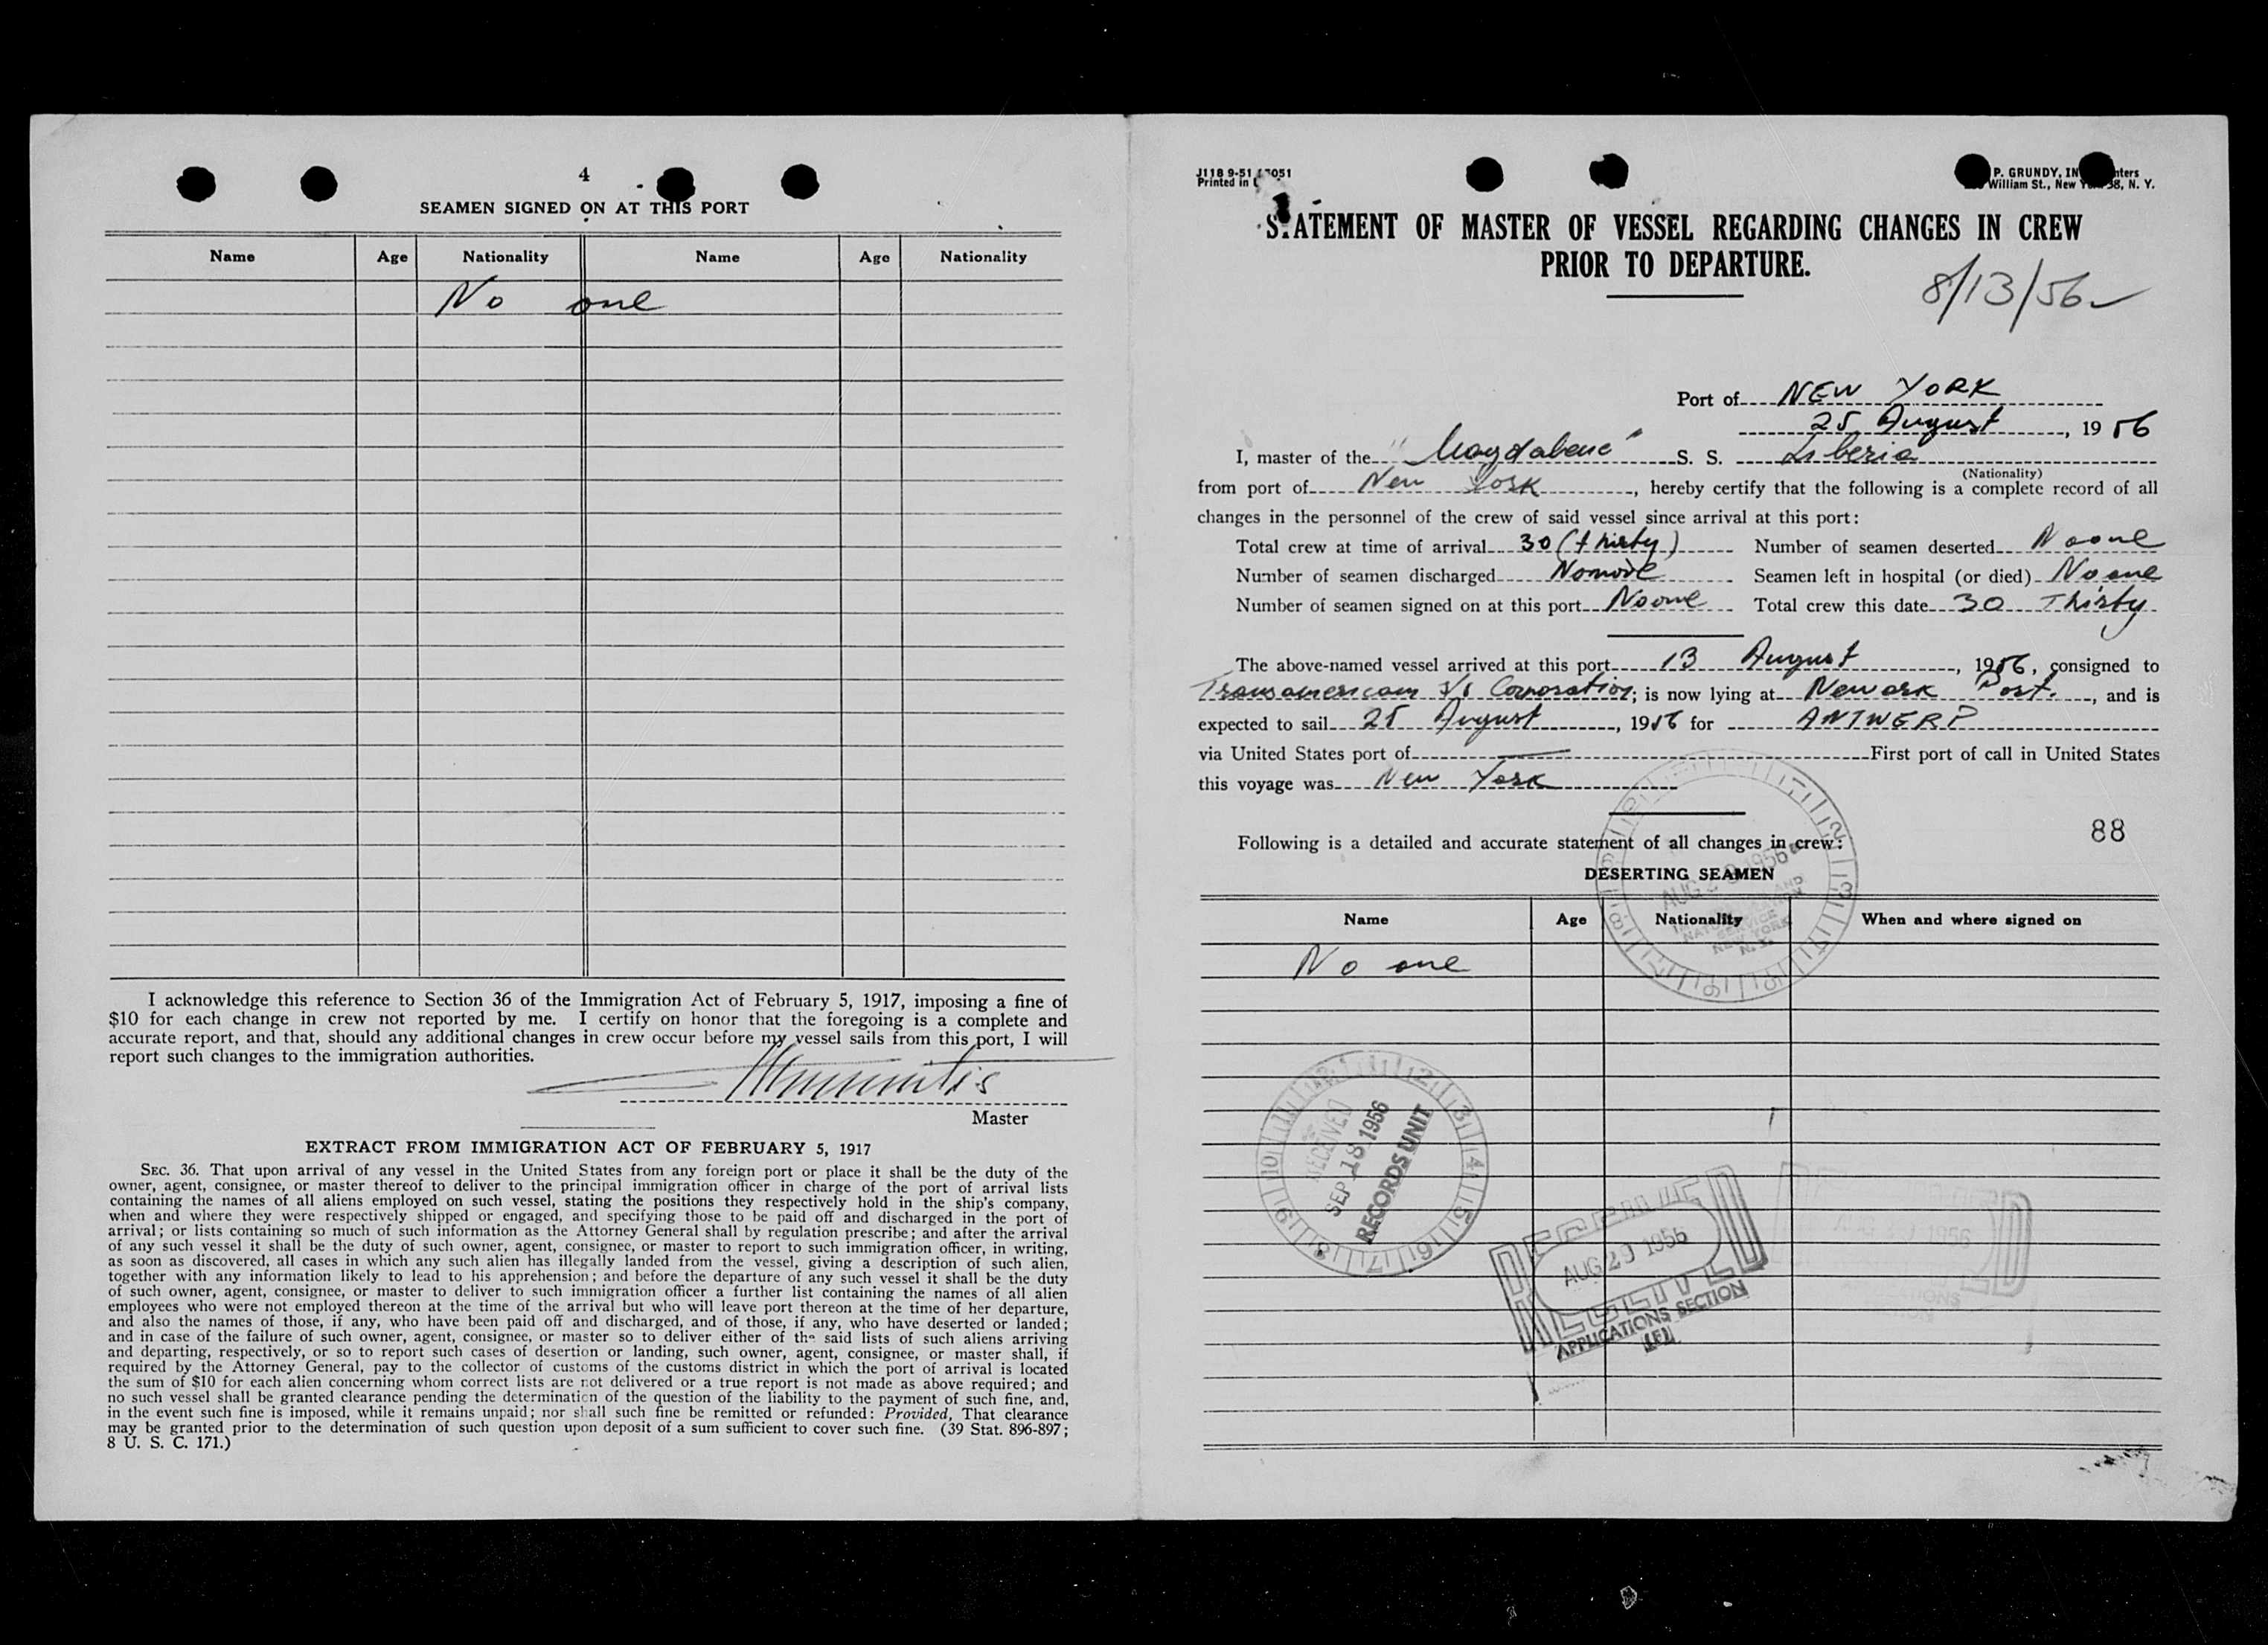 4
SEAMEN SIGNED ON AT THIS PORT
Name Age Nationality Name Age Nationality
No one
I acknowledge this reference to Section 36 of the Immigration Act of February 5, 1917, imposing a fine of
$10 for each change in crew not reported by me. I certify on honor that the foregoing is a complete and
accurate report, and that, should any additional changes in crew occur before my vessel sails from this port, I will
report such changes to the immigration authorities.
Master
EXTRACT FROM IMMIGRATION ACT OF FEBRUARY 5, 1917
SEC. 36. That upon arrival of any vessel in the United States from any foreign port or place it shall be the duty of the
owner, agent, consignee, or master thereof to deliver to the principal immigration officer in charge of the port of arrival lists
containing the names of all aliens employed on such vessel, stating the positions they respectively hold in the ship's company,
when and where they were respectively shipped or engaged, and specifying those to be paid off and discharged in the port of
arrival; or lists containing so much of such information as the Attorney General shall by regulation prescribe; and after the arrival
of any such vessel it shall be the duty of such owner, agent, consignee, or master to report to such immigration officer, in writing,
as soon as discovered, all cases in which any such alien has illegally landed from the vessel, giving a description of such alien,
together with any information likely to lead to his apprehension; and before the departure of any such vessel it shall be the duty
of such owner, agent, consignee, or master to deliver to such immigration officer a further list containing the names of all alien
employees who were not employed thereon at the time of the arrival but who will leave port thereon at the time of her departure,
and also the names of those, if any, who have been paid off and discharged, and of those, if any, who have deserted or landed;
and in case of the failure of such owner, agent, consignee, or master so to deliver either of the said lists of such aliens arriving
and departing, respectively, or so to report such cases of desertion or landing, such owner, agent, consignee, or master shall, if
required by the Attorney General, pay to the collector of customs of the customs district in which the port of arrival is located
the sum of $10 for each alien concerning whom correct lists are not delivered or a true report is not made as above required; and
no such vessel shall be granted clearance pending the determination of the question of the liability to the payment of such fine, and,
in the event such fine is imposed, while it remains unpaid; nor shall such fine be remitted or refunded: Provided, That clearance
may be granted prior to the determination of such question upon deposit of a sum sufficient to cover such fine. (39 Stat. 896-897;
8 U. S. C. 171.)
J118 9-51
Printed in
P. GRUNDY, IN
William St., New 38, N. Y.
STATEMENT OF MASTER OF VESSEL REGARDING CHANGES IN CREW
PRIOR TO DEPARTURE.
8/13/56
Port of NEW YORK
25 August, 1956
I, master of the "Magdalene" S. S. Liberia
(Nationality)
from port of New York, hereby certify that the following is a complete record of all
changes in the personnel of the crew of said vessel since arrival at this port:
Total crew at time of arrival 30 (thirty) Number of seamen deserted Noone
Number of seamen discharged Seamen left in hospital (or died) No one
Number of seamen signed on at this port Noone Total crew this date 30 Thirty
The above-named vessel arrived at this port 13 August, 1956, consigned to
Transamerican S/S Corporation; is now lying at Newark Port., and is
expected to sail 25 August, 1956 for ANTWERP
via United States port of — First port of call in United States
this voyage was New York
88
Following is a detailed and accurate statement of all changes in crew:
DESERTING SEAMEN
Name Age Nationality When and where signed on
No one
AUG 29 1956
SERVICE
NEW YORK
N. Y.
RECEIVED
SEP 18 1956
RECORDS UNIT
RECEIVED
AUG 29 1956
APPLICATIONS SECTION
AUG 29 1956